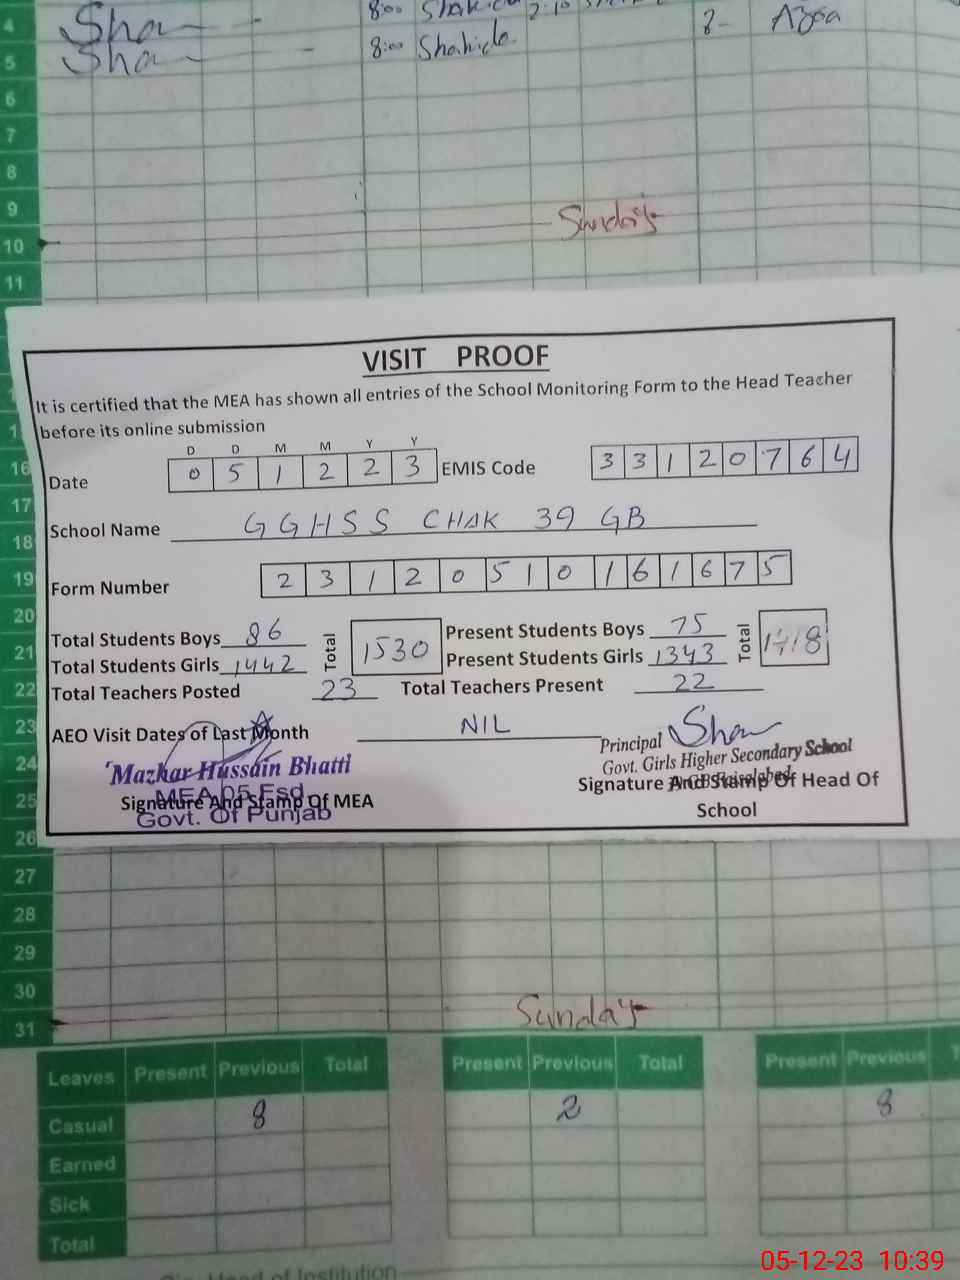 4 Sha 8:00 2:10 8- Azra
5 Sha 8:00 Shahida
6
7
8
9 Sunday
10
11
VISIT PROOF
It is certified that the MEA has shown all entries of the School Monitoring Form to the Head Teacher
before its online submission
D D M M Y Y
16 Date 0 5 1 2 2 3 EMIS Code 3 3 1 2 0 7 6 4
17
School Name GGHSS CHAK 39 GB
18
19 Form Number 2 3 1 2 0 5 1 0 1 6 1 6 7 5
20
21 Total Students Boys 86 Total 1530 Present Students Boys 75 Total 1418
Total Students Girls 1442 Present Students Girls 1343
22 Total Teachers Posted 23 Total Teachers Present 22
23 AEO Visit Dates of Last Month NIL Sha
Principal
24 Mazhar Hussain Bhatti Govt. Girls Higher Secondary School
MEA 05 Fsd Signature And Stamp Of Head Of
25 Signature And Stamp Of MEA School
Govt. Of Punjab
26
27
28
29
30
31 Sunday
Leaves Present Previous Total Present Previous Total Present Previous T
Casual 8 2 8
Earned
Sick
Total
Head of Institution
05-12-23 10:39